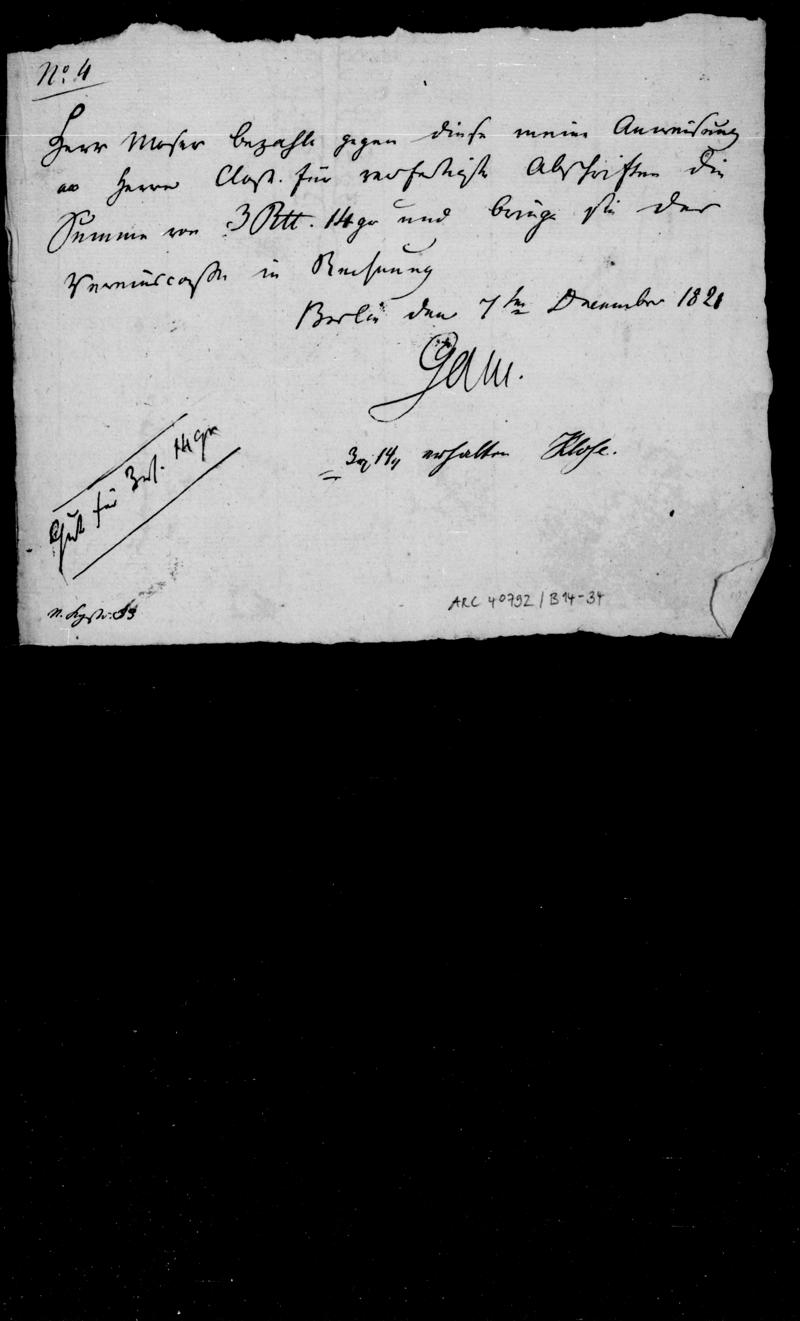 No. 4
Herr Moser bezahle gegen diese meine Anweisung
an Herrn Close für verfertigte Abschriften die
Summe von 3 Rtl. 14 gr und bringe sie der
Vereinscasse in Rechnung
Berlin den 7ten December 1821
Gans.
3 rt 14 erhalten Klose.
Gut für 3 rt. 14 gr
ARC 40792 / B14-34